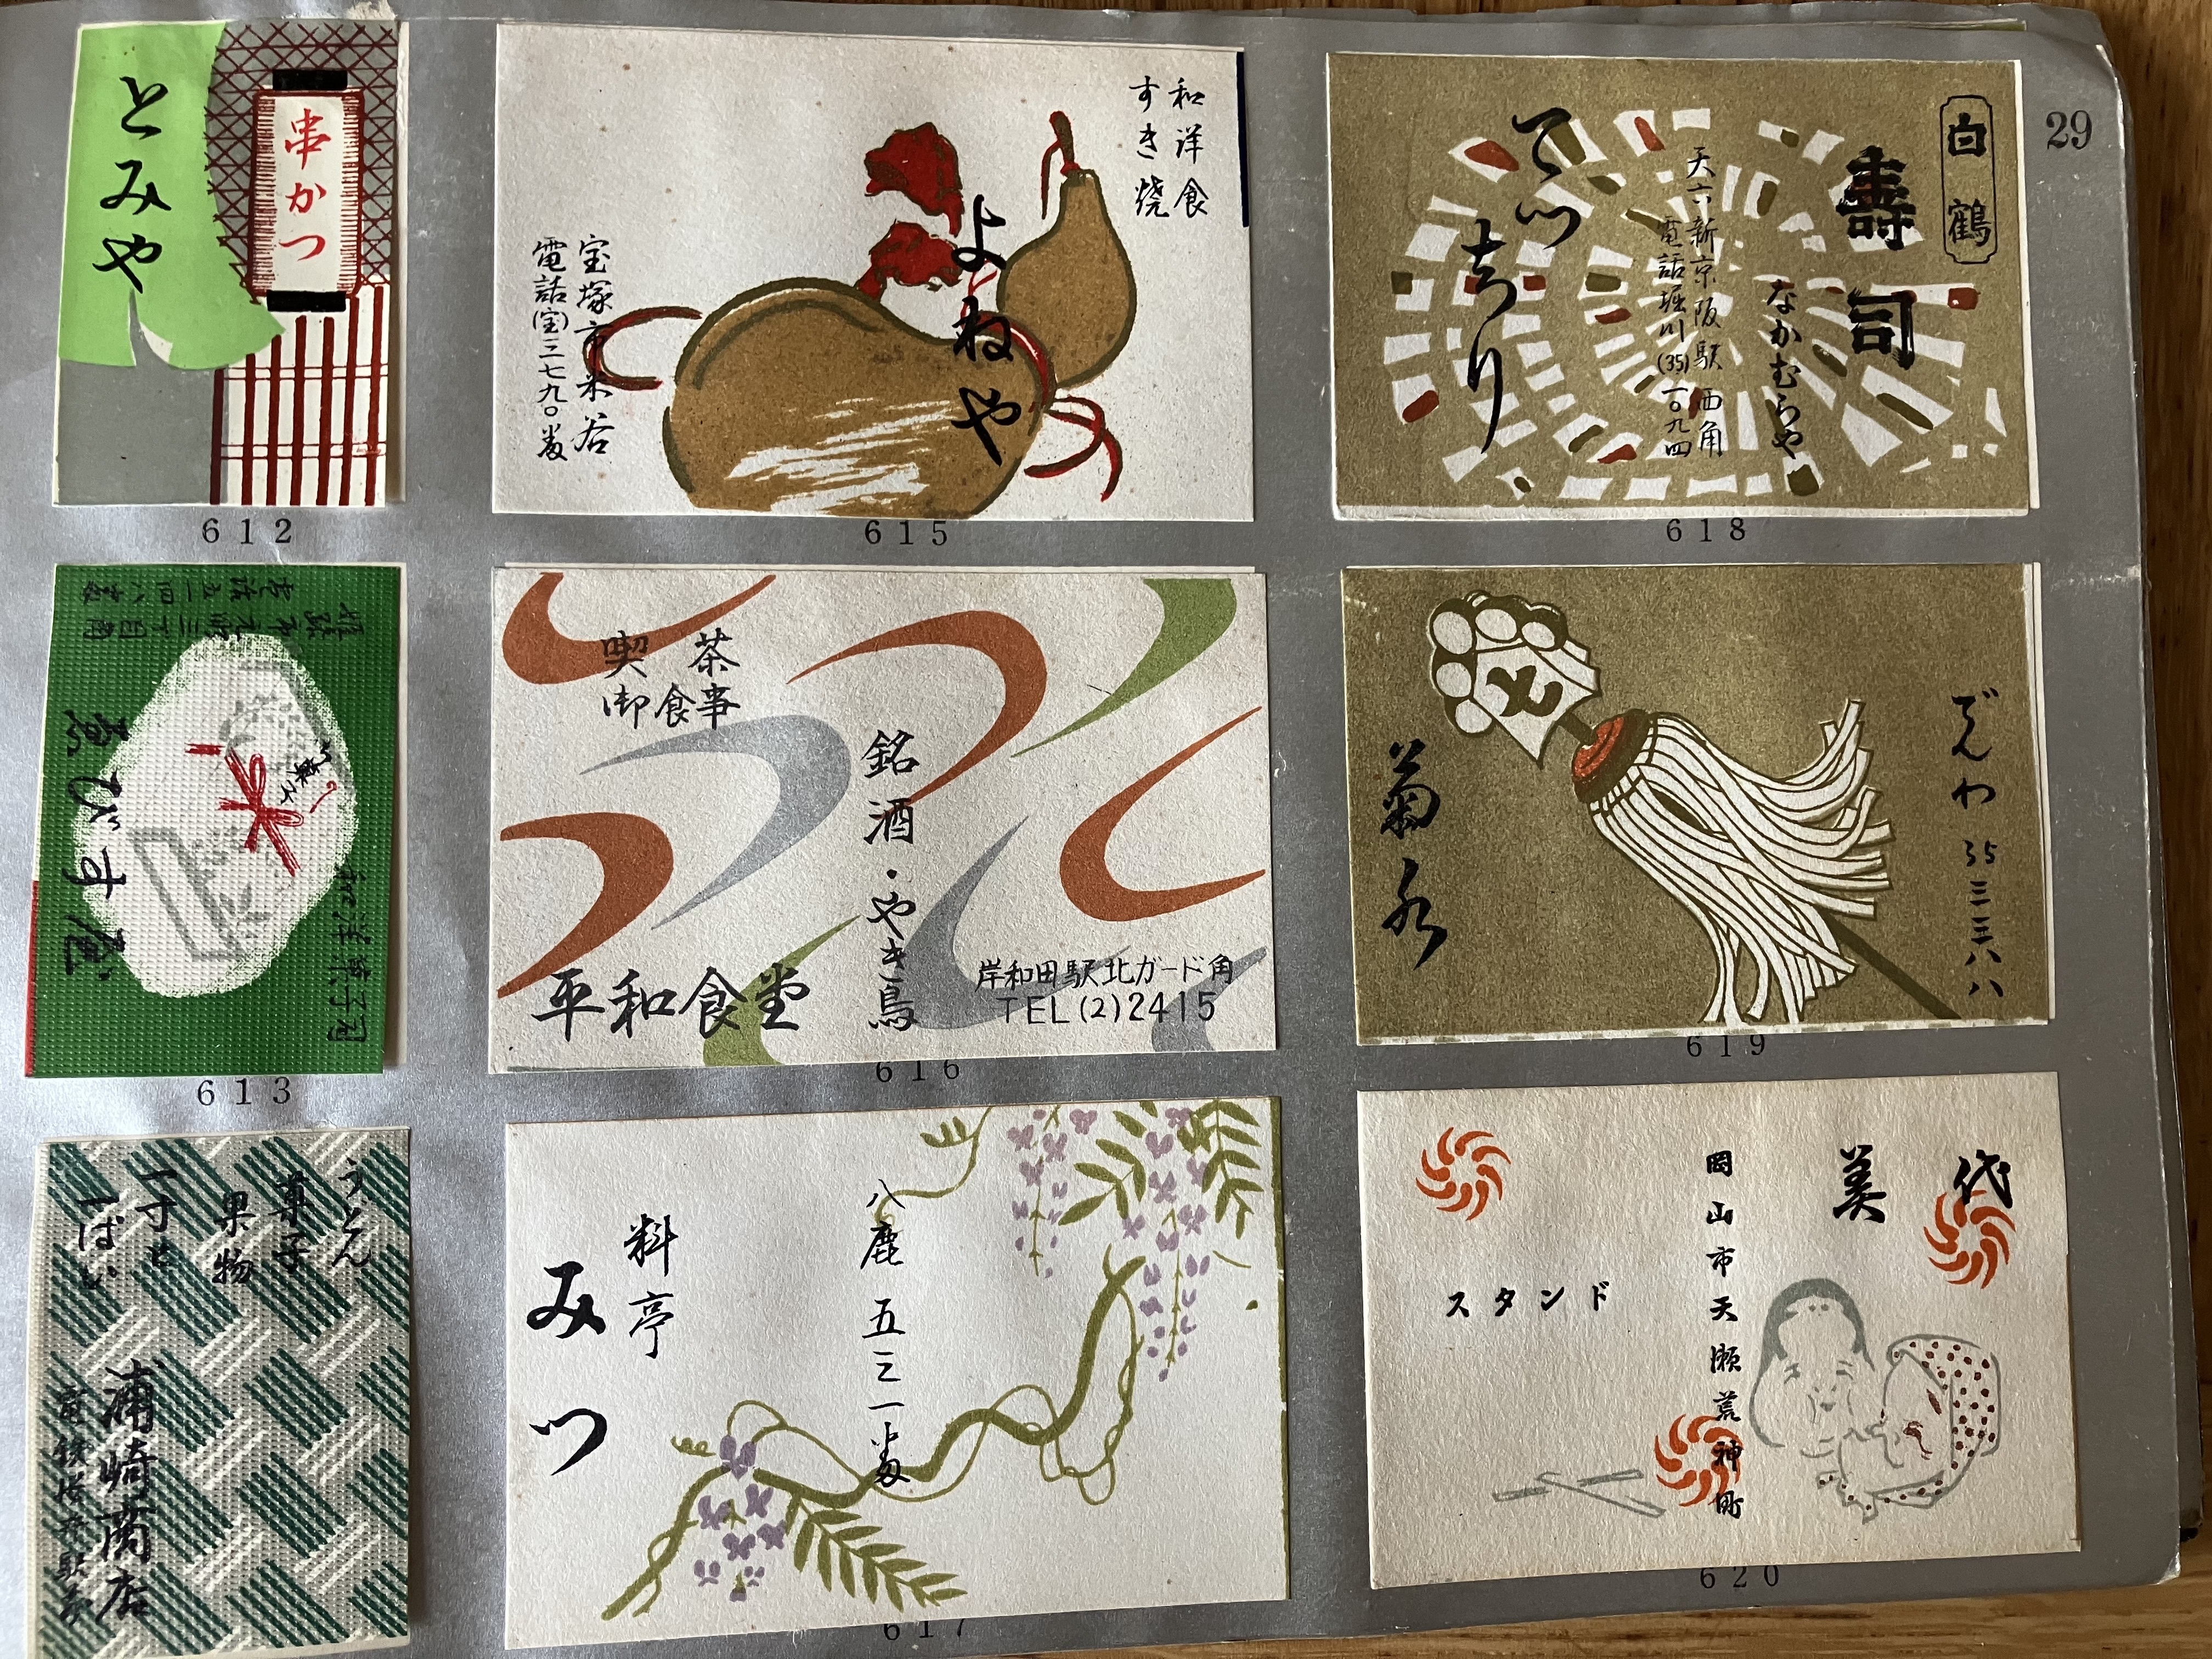 29
串かつ
とみや
612
和洋食
すき焼
よねや
宝塚市米谷
電話(宝)三七九〇番
615
白鶴
壽司
なかむらや
天六新京阪駅西角
電話堀川(35)一〇九四
てつちり
618
和洋菓子司
ゑびす屋
613
喫茶
御食事
銘酒・やき鳥
平和食堂
岸和田駅北ガード角
TEL(2)2415
616
でんわ 35三三八八
菊水
619
うどん
菓子
果物
一寸と
一ぱい
浦崎商店
料亭
みつ
八鹿 五三一番
617
美代
岡山市天瀬荒神町
スタンド
620